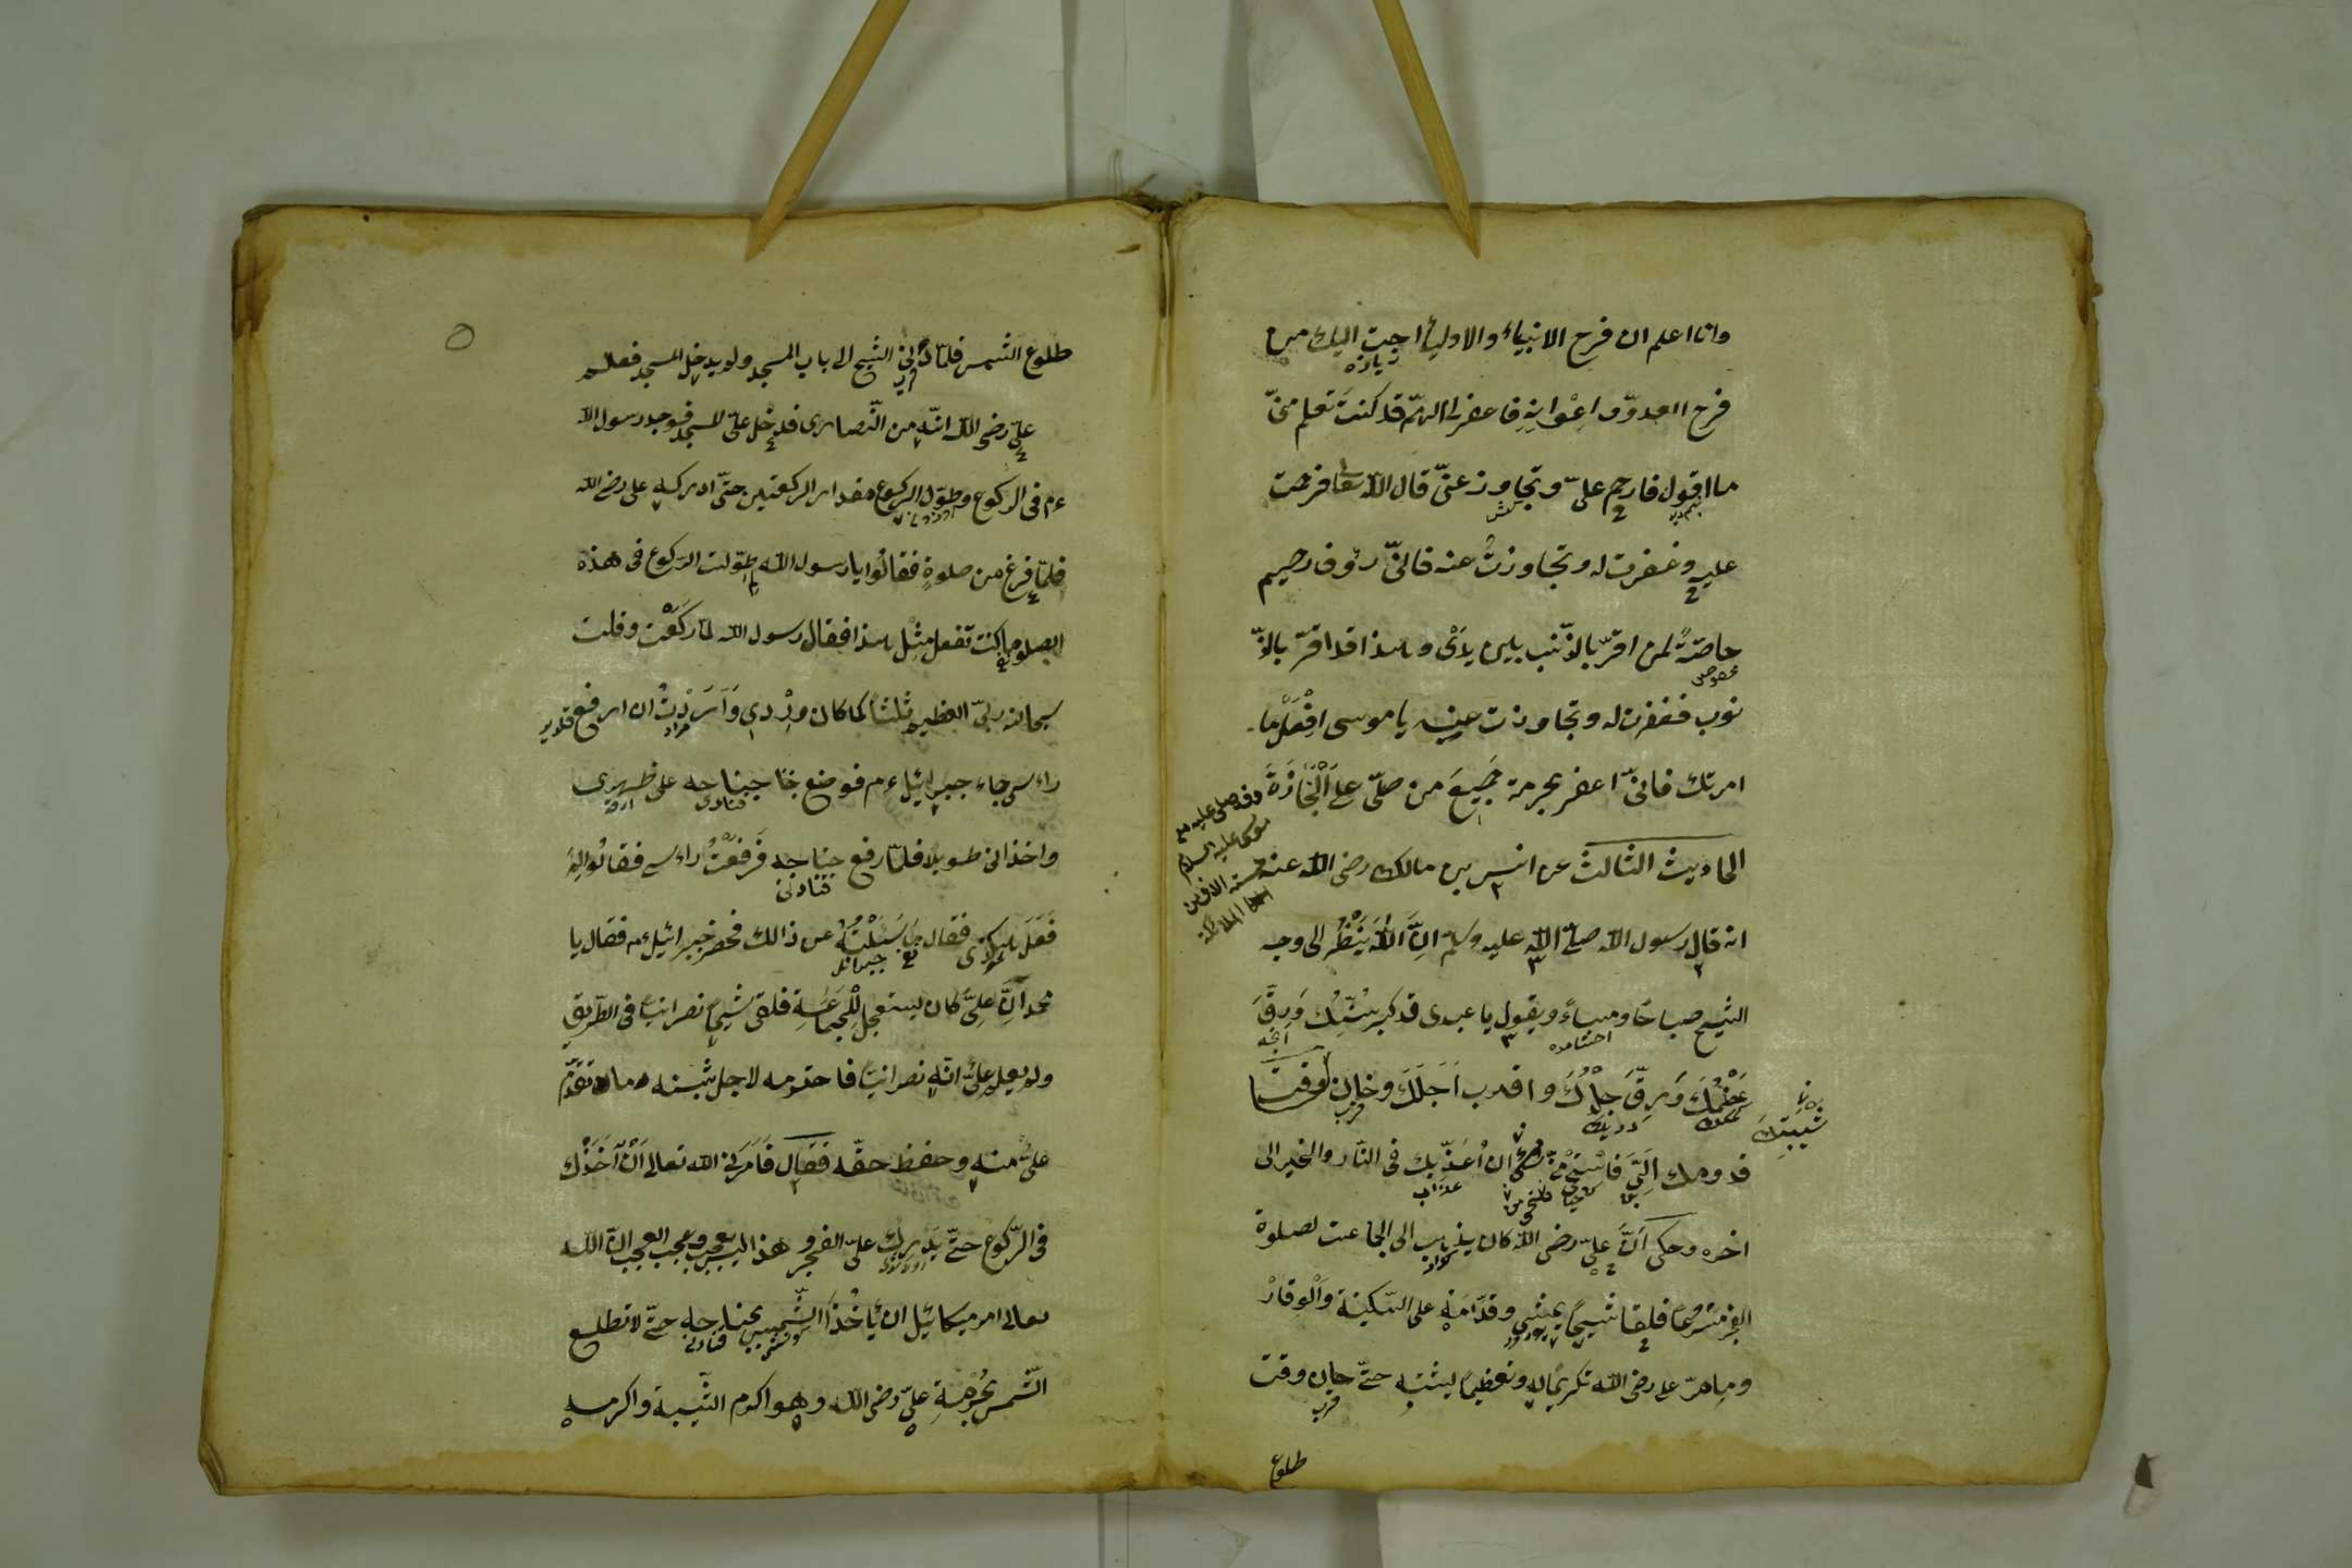 وانا اعلم ان فرح الانبياء والاولياء احبّ اليك من
زياده
فرح العدوّ و اعوانه فاغفرلى اللهمّ قد كنت تعلم منّى
ما اقول فارحم علىّ وتجاوز عنّى قال الله تعا فرحمت
عليه وغفرت له وتجاوزت عنه فانّى رؤف رحيم
خاصّة لمن اقرّ بالذّنب بين يدىّ وهذا قد اقرّ بالذّ
نوب فغفرت له وتجاوزت عنه يا موسى افعل ما
امرتك فانّى اغفر بحرمة جميع من صلّى على الجنازة
وقد صلى عليه مع
موسى عليه السلام
الملائكة
الحاديث الثالث عن انس بن مالك رضى الله عنه
انه قال رسول الله صلّى الله عليه وسلّم انّ الله ينظر الى وجه
الشيخ صباحًا ومساءً ويقول يا عبدى قد كبر سنّك ورقّ
عظمك ورقّ جلدك واقرب اجلك وحان وقت
شيبتك
قدومك الىّ فاستحى منّى ان اعذّبك فى النّار والخبر الى
عذاب
اخره وحكى انّ علىّ رضى الله كان يذهب الى الجماعت لصلوة
الفجر مسرعًا فلقا شيخًا يمشى وقدّامه على السّكينة والوقار
وما مرّ على رضى الله تكريمًا له وتعظيمًا لشيبته حتّى حان وقت
قرب
طلوع
طلوع الشمس فلمّا دنى الشيخ الى باب المسجد ولم يدخل المسجد فعلم
قرب
علىّ رضى الله انّه من النّصارى فدخل علىّ المسجد فوجد رسول الله
ءم فى الركوع وطوّل الركوع مقدار الركعتين حتّى ادركه على رضى الله
فلمّا فرغ من صلوة فقالوا يا رسول الله لم طوّلت الرّكوع فى هذه
الصلوة ما كنت تفعل مثل هذا فقال رسول الله لمّا ركعت وقلت
سبحان ربّى العظيم ثلثًا كما كان وردى واردت ان ارفع
رأسى جاء جبرائيل ءم فوضع جناحه على ظهرى
واخذنى طويلا فلمّا رفع جناحه فرفعت رأسى فقالوا له
قنادنى
فقال ما سئلته عن ذالك فحضر جبرائيل ءم فقال يا
جبرائل
محمد انّ علىّ كان يستعجل للجماعة فلقى شيخًا نصرانيًا فى الطّريق
ولم يعلم علىّ انّه نصرانيًا فاحترمه لاجل شيبته وما تقدّم
علىّ منه وحفظ حقّه فقال فامرنى الله تعالى ان اخذك
فى الرّكوع حتّى يدرك علىّ الفجر وهذا ليس بعجيب وعجب العجب انّ الله
تعالى امر ميكائيل ان يأخذ الشّمس بجناحه حتّى لا تطلع
الشّمس بحرمة علىّ رضى الله وهو اكرم الشّيبة واكرمه